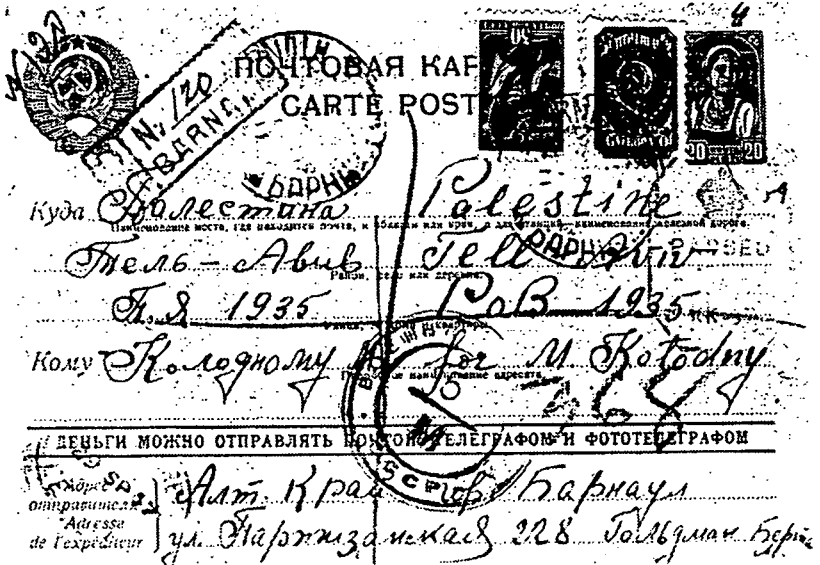 № 120
BARNA
ПОЧТОВАЯ КАР
CARTE POST
БАРНА
20 20
Куда Палестина Palestine
Наименование места, где находится почта, и области или края, а для станций – наименование железной дороги.
PASSED
Тель-Авив Tell Aviv
Район, село или деревня
П.Я 1935 PoB 1935
Кому Колодному for M. Kołodny
наименование адресата
ДЕНЬГИ МОЖНО ОТПРАВЛЯТЬ ПОЧТОЙ ТЕЛЕГРАФОМ И ФОТОТЕЛЕГРАФОМ
Адрес отправителя
Adresse de l'expéditeur
Алт. Край гор Барнаул
ул. Партизанская 228 Гольдман